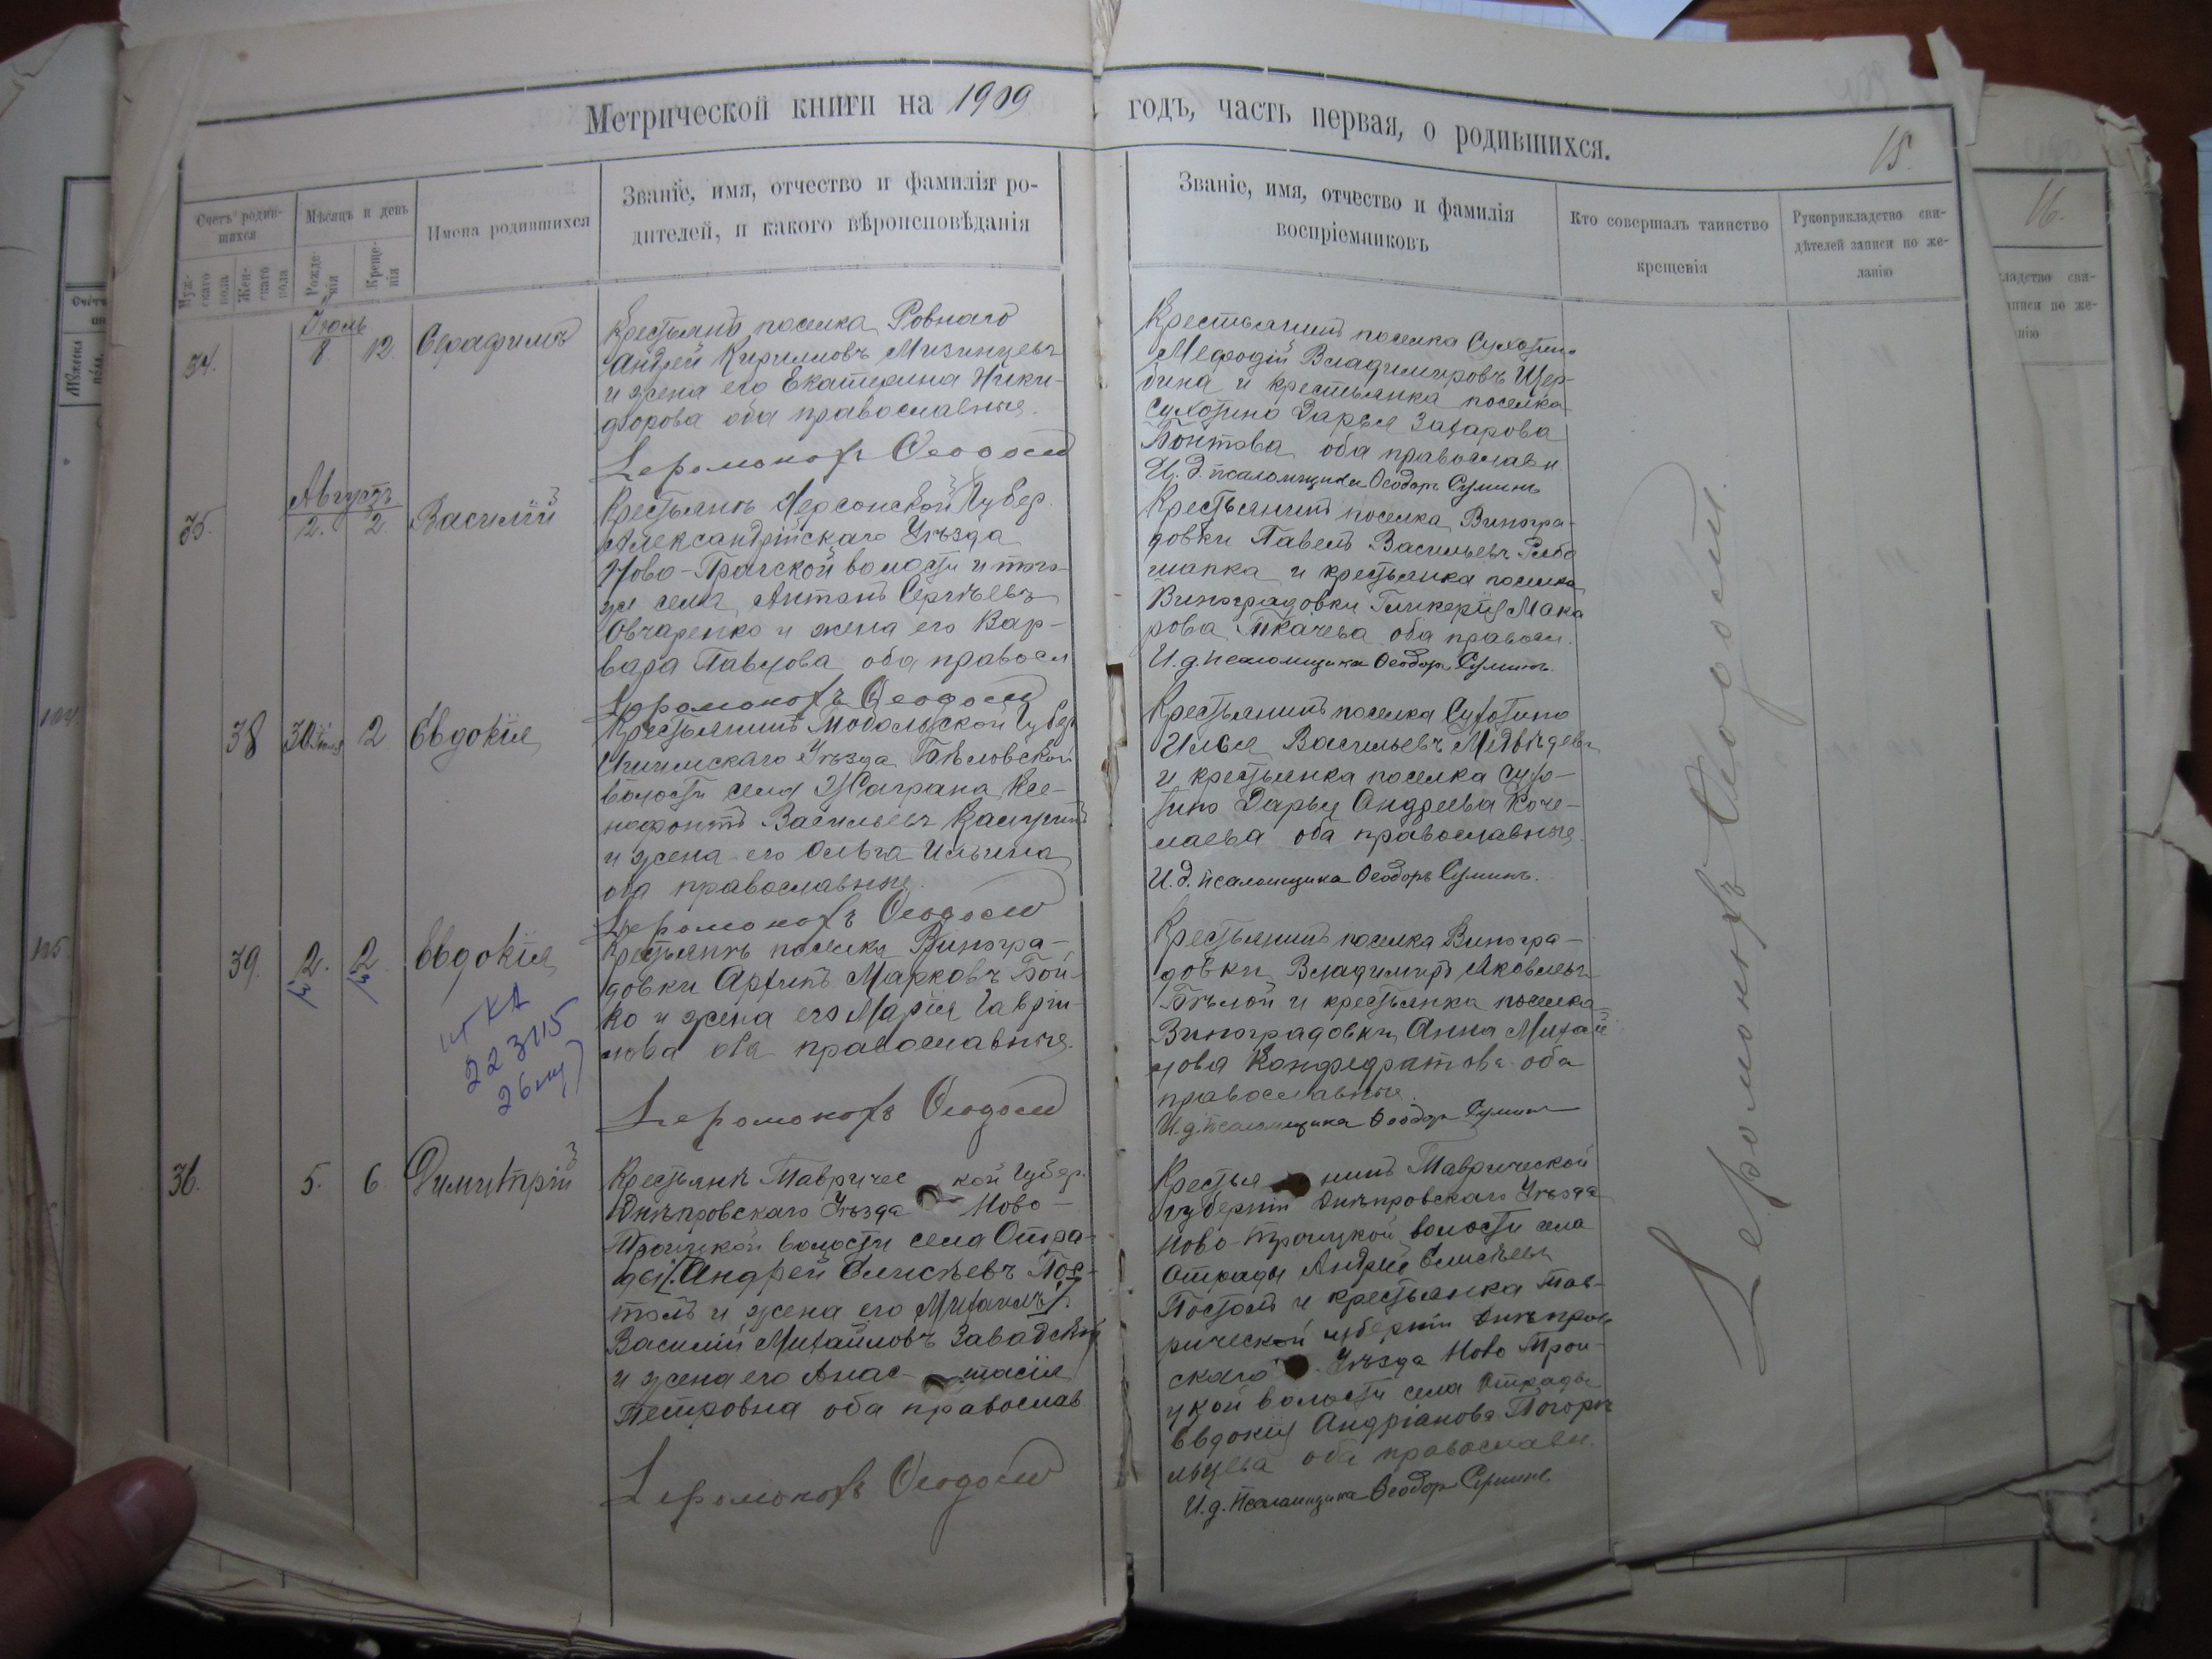 Метрической книги на 1909 годъ, часть первая, о родившихся.
15.
Счетъ родив-
шихся
Муж-
скаго
пола
Жен-
скаго
пола
Мѣсяцъ и день
Рожде-
нія
Креще-
нія
Имена родившихся
Званіе, имя, отчество и фамилія ро-
дителей, и какого вѣроисповѣданія
Званіе, имя, отчество и фамилія
воспріемниковъ
Кто совершалъ таинство
крещенія
Рукоприкладство сви-
дѣтелей записи по же-
ланію
34.
Іюль
8
12.
Серафимъ
Крестьянъ поселка Ровнаго
Андрей Кирилловъ Мизинцевъ
и жена его Екатерина Ники-
форова оба православные.
Іеромонахъ Ѳеодосій
Крестьянинъ поселка Сухотино
Меѳодій Владимировъ Щер-
бина и крестьянка поселка
Сухотино Дарья Захарова
оба православн
И. д. псаломщика Ѳеодоръ Суминъ
35.
Августъ
2.
2.
Василій
Крестьянъ Херсонской Губер.
Александрійскаго Уѣзда
Ново-Прагской волости и того-
же села Антонъ Сергѣевъ
Овчаренко и жена его Вар-
вара Павлова оба правосл
Іеромонахъ Ѳеодосій
Крестьянинъ поселка Виногра-
довки Павелъ Васильевъ Ряба
шапка и крестьянка поселка
Виноградовки Гликерія Мака
рова Ткачева оба правосл.
И. д. псаломщика Ѳеодоръ Суминъ.
38
30 Іюля
2
Евдокія
Крестьянинъ Тобольской Губер
Ишимскаго Уѣзда Бѣловской
волости села Ксе-
нофонтъ Васильевъ
и жена его Ольга Ильина
оба православные.
Іеромонахъ Ѳеодосій
Крестьянинъ поселка Сухотино
Илья Васильевъ Медвѣдевъ
и крестьянка поселка Сухо-
тино Дарья Андреева Коче-
лаева оба православные.
И. д. псаломщика Ѳеодоръ Суминъ.
39.
2.
2.
Евдокія
223115
Крестьянъ поселка Виногра-
довки Архипъ Марковъ Бой-
ко и жена его Марія Гаврии-
лова оба православные.
Іеромонахъ Ѳеодосій
Крестьянинъ поселка Виногра-
довки Владимиръ Яковлевъ
Бѣлой и крестьянка поселка
Виноградовки Анна Михай
лова Конфедратова оба
православные.
И. д. псаломщика Ѳеодоръ Суминъ
36.
5.
6.
Димитрій
Крестьянъ Тавричес кой Губер.
Днѣпровскаго Уѣзда Ново-
Троицкой волости села Отра-
ды /. Андрей Елисѣевъ Пос-
толъ и жена его Михаилъ /.
Василій Михайловъ Завадскій
и жена его Анас- тасія
Петровна оба православ
Іеромонахъ Ѳеодосій
Крестья нинъ Таврической
губерніи Днѣпровскаго Уѣзда
Ново-Троицкой волости села
Отрады Андрей Елисѣевъ
Постолъ и крестьянка Тав-
рической губерніи Днѣпров
скаго Уѣзда Ново Трои-
цкой волости села Отрады
Евдокія Андріанова Погорѣ
льцева оба православн.
И. д. Псаломщика Ѳеодоръ Суминъ
Іеромонахъ Ѳеодосій.
16.